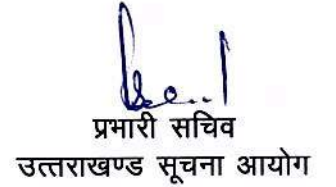 प्रभारी सचिव
उत्तराखण्ड सूचना आयोग